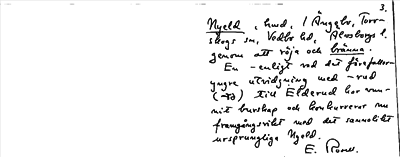 3.
Nyeld, hmd, i Ängebo, Torr-
skogs sn, Vedbo hd, Älvsborgs l.
genom att röja och bränna.
En – enligt vad det förefaller –
yngre utvidgning med -rud
(-rö) till Elderud har vun-
nit burskap och konkurrerar nu
framgångsrikt med det sannolikt
ursprungliga Nyeld.
E.